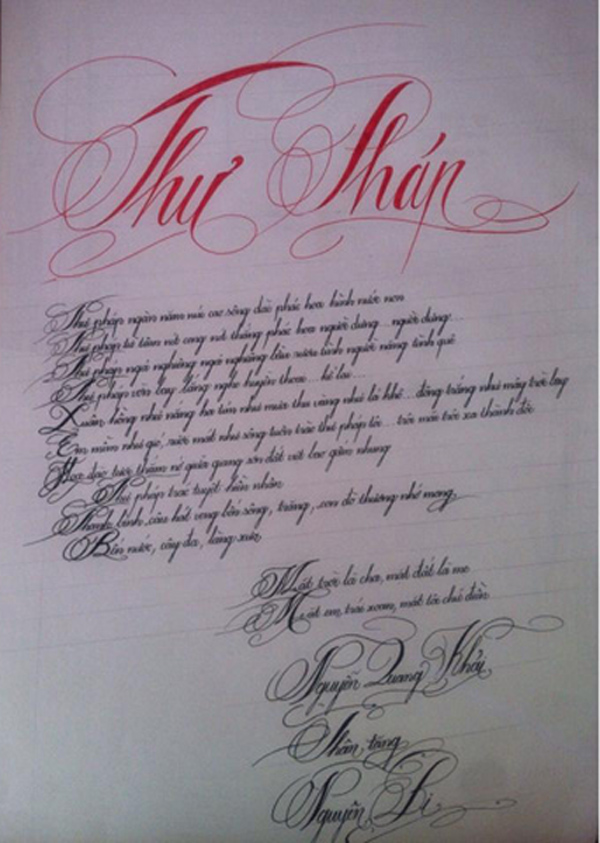 Thư Pháp
Thư pháp ngàn năm núi cao sông dài phác họa hình nước non
Thư pháp từ tâm nét cong nét thẳng phác họa người dưng... người dưng...
Thư pháp ngả nghiêng ngả nghiêng bầu rượu tình người nặng tình quê
Thư pháp vờn bay lắng nghe huyền thoại... kể lại...
Xuân hồng như nắng hạ tím như mưa thu vàng như lá khẽ... đông trắng như mây trời bay
Em mềm như gió, mượt mát như sông tuôn trào thư pháp tôi... trôi mãi trôi xa thành đôi
Hoa đào tươi thắm nở giữa giang sơn đất việt bao gấm nhung
Thư pháp trác tuyệt hiền nhân
Thanh bình câu hát vang bến sông, trăng, con đò thương nhớ mong
Bến nước, cây đa, làng xưa
Mắt trời là cha, mắt đất là mẹ
Mắt em trái xoan, mắt tôi chữ điền
Nguyễn Quang Khải
Thân tặng
Nguyễn Di